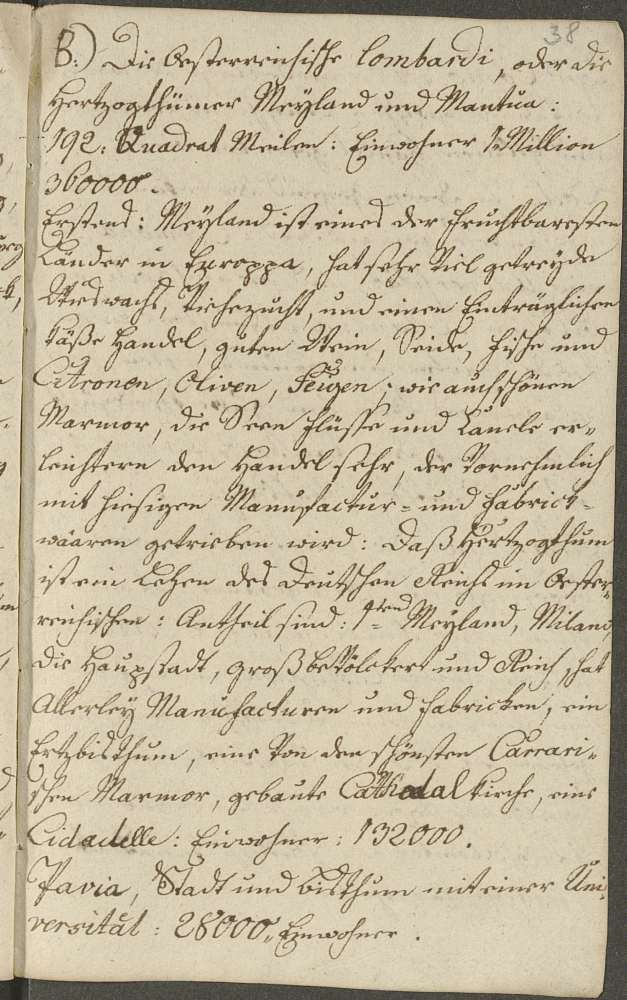 38
B.) Die Oesterreichische Lombardi, oder die
Hertzogthümer Meÿland und Mantua:
192: Quadrat Meilen: Einwohner 1 Million
360000.
Erstens: Meÿland ist eines der fruchtbaresten
Länder in Europpa, hat sehr Viel getreÿde
Wieswachs, Viehezucht, und einen Einträglichen
Käße Handel, guten Wein, Seide, Fische und
Citronen, Oliven, Feigen; wie auch schönen
Marmor, die Seen Flüsse und Canele er-
leichtern den Handel sehr, der Vornehmlich
mit hiesigen Manufactur- und Fabrick-
waaren getrieben wird: Daß Hertzogthum
ist ein Lehen des Deutschen Reichs im Oester-
reichischen: Antheil sind: 1tens Meÿland, Milano,
die Haupstadt, groß beVölckert und Reich, hat
Allerleÿ Manufacturen und Fabricken, ein
Ertzbisthum, eine Von den schönsten Carrari-
schen Marmor, gebaute Cathedal Kirche, eine
Cidadelle: Einwohner: 132000.
Pavia, Stadt und Bisthum mit einer Uni-
versität: 28000, Einwohner.